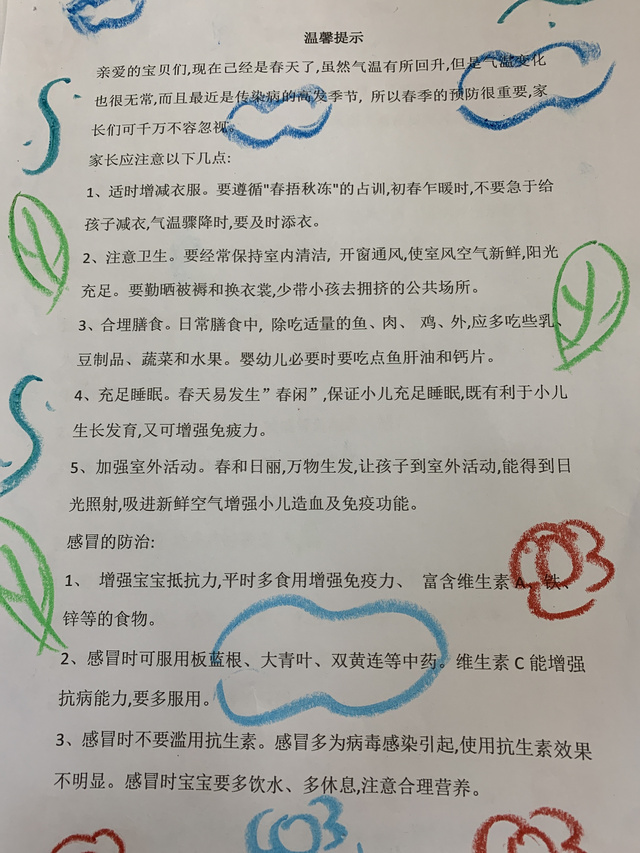 温馨提示
亲爱的宝贝们,现在己经是春天了,虽然气温有所回升,但是气温变化
也很无常,而且最近是传染病的高发季节, 所以春季的预防很重要,家
长们可千万不容忽视。
家长应注意以下几点:
1、适时增减衣服。要遵循"春捂秋冻"的占训,初春乍暖时,不要急于给
孩子减衣,气温骤降时,要及时添衣。
2、注意卫生。要经常保持室内清洁, 开窗通风,使室风空气新鲜,阳光
充足。要勤晒被褥和换衣裳,少带小孩去拥挤的公共场所。
3、合埋膳食。日常膳食中, 除吃适量的鱼、肉、 鸡、外,应多吃些乳、
豆制品、蔬菜和水果。婴幼儿必要时要吃点鱼肝油和钙片。
4、充足睡眠。春天易发生”春闲”,保证小儿充足睡眠,既有利于小儿
生长发育,又可增强免疲力。
5、加强室外活动。春和日丽,万物生发,让孩子到室外活动,能得到日
光照射,吸进新鲜空气增强小儿造血及免疫功能。
感冒的防治:
1、 增强宝宝抵抗力,平时多食用增强免疫力、 富含维生素 A、铁、
锌等的食物。
2、感冒时可服用板蓝根、大青叶、双黄连等中药。维生素 C 能增强
抗病能力,要多服用。
3、感冒时不要滥用抗生素。感冒多为病毒感染引起,使用抗生素效果
不明显。感冒时宝宝要多饮水、多休息,注意合理营养。